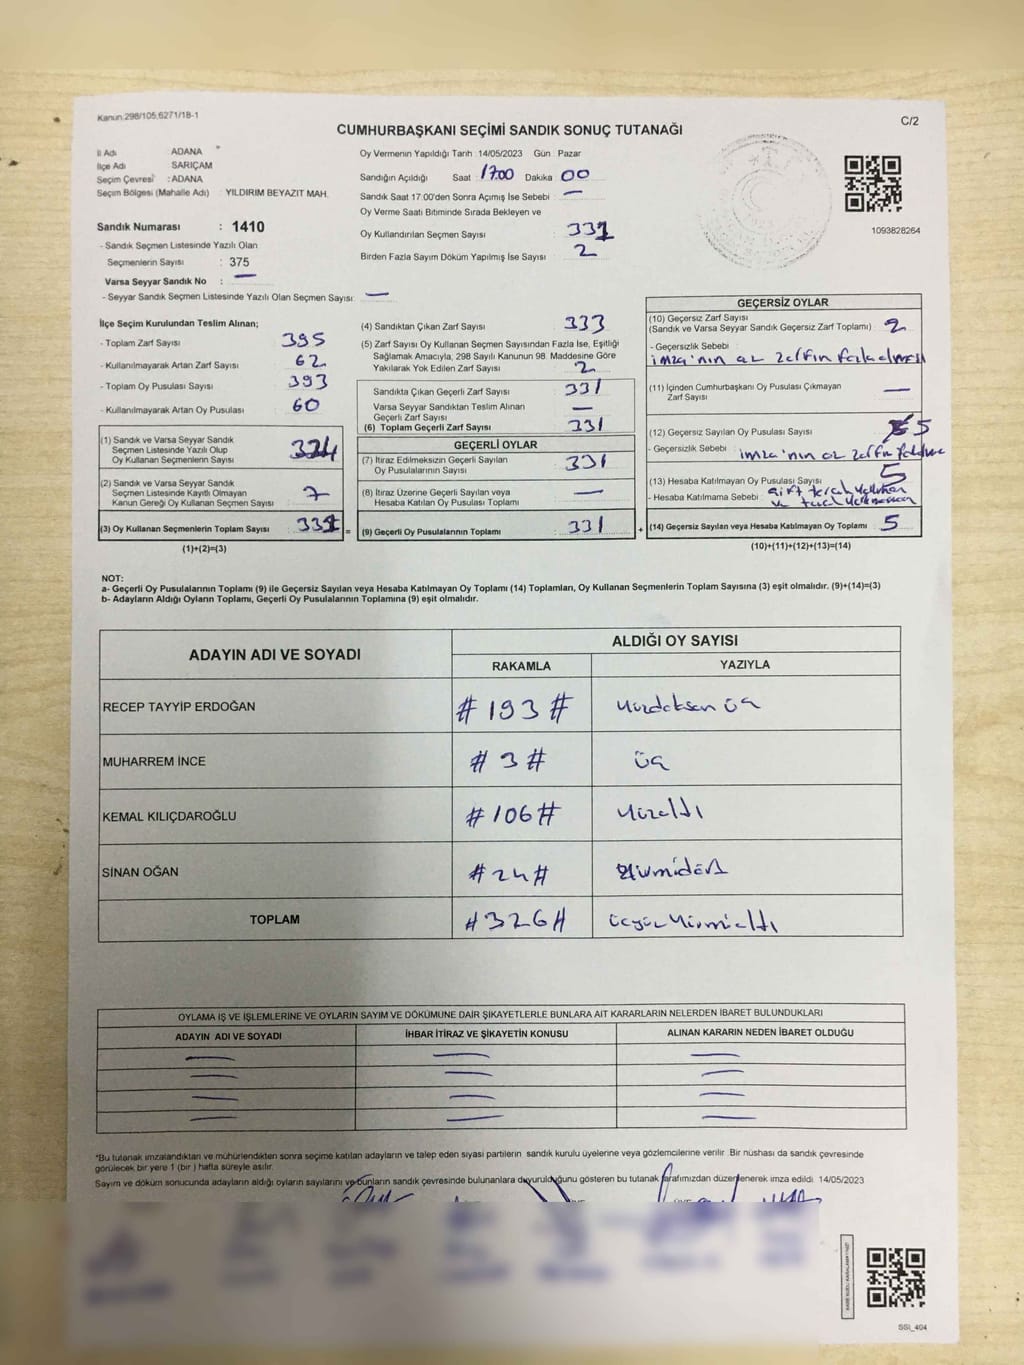 Kanun.298/105,6271/18-1
C/2
CUMHURBAŞKANI SEÇİMİ SANDIK SONUÇ TUTANAĞI
İl Adı ADANA
İlçe Adı SARIÇAM
Seçim Çevresi : ADANA
Seçim Bölgesi (Mahalle Adı) : YILDIRIM BEYAZIT MAH.
Sandık Numarası : 1410
- Sandık Seçmen Listesinde Yazılı Olan
Seçmenlerin Sayısı : 375
Varsa Seyyar Sandık No : —
- Seyyar Sandık Seçmen Listesinde Yazılı Olan Seçmen Sayısı: —
Oy Vermenin Yapıldığı Tarih : 14/05/2023 Gün : Pazar
Sandığın Açıldığı Saat : 17.00 Dakika : 00
Sandık Saat 17.00'den Sonra Açımış İse Sebebi : —
Oy Verme Saati Bitiminde Sırada Bekleyen ve
Oy Kullandırılan Seçmen Sayısı 331
Birden Fazla Sayım Döküm Yapılmış İse Sayısı 2
1093828264
İlçe Seçim Kurulundan Teslim Alınan;
- Toplam Zarf Sayısı : 395
- Kullanılmayarak Artan Zarf Sayısı : 62
- Toplam Oy Pusulası Sayısı : 393
- Kullanılmayarak Artan Oy Pusulası : 60
(1) Sandık ve Varsa Seyyar Sandık
Seçmen Listesinde Yazılı Olup
Oy Kullanan Seçmenlerin Sayısı 324
(2) Sandık ve Varsa Seyyar Sandık
Seçmen Listesinde Kayıtlı Olmayan
Kanun Gereği Oy Kullanan Seçmen Sayısı 7
(3) Oy Kullanan Seçmenlerin Toplam Sayısı 331 =
(1)+(2)=(3)
(4) Sandıktan Çıkan Zarf Sayısı 333
(5) Zarf Sayısı Oy Kullanan Seçmen Sayısından Fazla İse, Eşitliği
Sağlamak Amacıyla, 298 Sayılı Kanunun 98. Maddesine Göre
Yakılarak Yok Edilen Zarf Sayısı 2
Sandıkta Çıkan Geçerli Zarf Sayısı 331
Varsa Seyyar Sandıktan Teslim Alınan
Geçerli Zarf Sayısı —
(6) Toplam Geçerli Zarf Sayısı 331
GEÇERLİ OYLAR
(7) İtiraz Edilmeksizin Geçerli Sayılan
Oy Pusulalarının Sayısı 331
(8) İtiraz Üzerine Geçerli Sayılan veya
Hesaba Katılan Oy Pusulası Toplamı —
(9) Geçerli Oy Pusulalarının Toplamı 331 +
GEÇERSİZ OYLAR
(10) Geçersiz Zarf Sayısı
(Sandık ve Varsa Seyyar Sandık Geçersiz Zarf Toplamı) : 2
- Geçersizlik Sebebi :
imza'nın az zarfın fazla olması
(11) İçinden Cumhurbaşkanı Oy Pusulası Çıkmayan
Zarf Sayısı : —
(12) Geçersiz Sayılan Oy Pusulası Sayısı : 5
- Geçersizlik Sebebi : imza'nın az zarfın
(13) Hesaba Katılmayan Oy Pusulası Sayısı : 5
- Hesaba Katılmama Sebebi :
(14) Geçersiz Sayılan veya Hesaba Katılmayan Oy Toplamı 5
(10)+(11)+(12)+(13)=(14)
NOT:
a- Geçerli Oy Pusulalarının Toplamı (9) ile Geçersiz Sayılan veya Hesaba Katılmayan Oy Toplamı (14) Toplamları, Oy Kullanan Seçmenlerin Toplam Sayısına (3) eşit olmalıdır. (9)+(14)=(3)
b- Adayların Aldığı Oyların Toplamı, Geçerli Oy Pusulalarının Toplamına (9) eşit olmalıdır.
ADAYIN ADI VE SOYADI
ALDIĞI OY SAYISI
RAKAMLA YAZIYLA
RECEP TAYYİP ERDOĞAN #193# yüzdoksan üç
MUHARREM İNCE #3# üç
KEMAL KILIÇDAROĞLU #106# yüzaltı
SİNAN OĞAN #24# yirmidört
TOPLAM #326# üçyüzyirmialtı
OYLAMA İŞ VE İŞLEMLERİNE VE OYLARIN SAYIM VE DÖKÜMÜNE DAİR ŞİKAYETLERLE BUNLARA AİT KARARLARIN NELERDEN İBARET BULUNDUKLARI
ADAYIN ADI VE SOYADI İHBAR İTİRAZ VE ŞİKAYETİN KONUSU ALINAN KARARIN NEDEN İBARET OLDUĞU
*Bu tutanak imzalandıktan ve mühürlendikten sonra seçime katılan adayların ve talep eden siyasi partilerin sandık kurulu üyelerine veya gözlemcilerine verilir. Bir nüshası da sandık çevresinde
görülecek bir yere 1 (bir) hafta süreyle asılır.
Sayım ve döküm sonucunda adayların aldığı oyların sayılarını ve bunların sandık çevresinde bulunanlara duyurulduğunu gösteren bu tutanak tarafımızdan düzenlenerek imza edildi. 14/05/2023
SSI_404